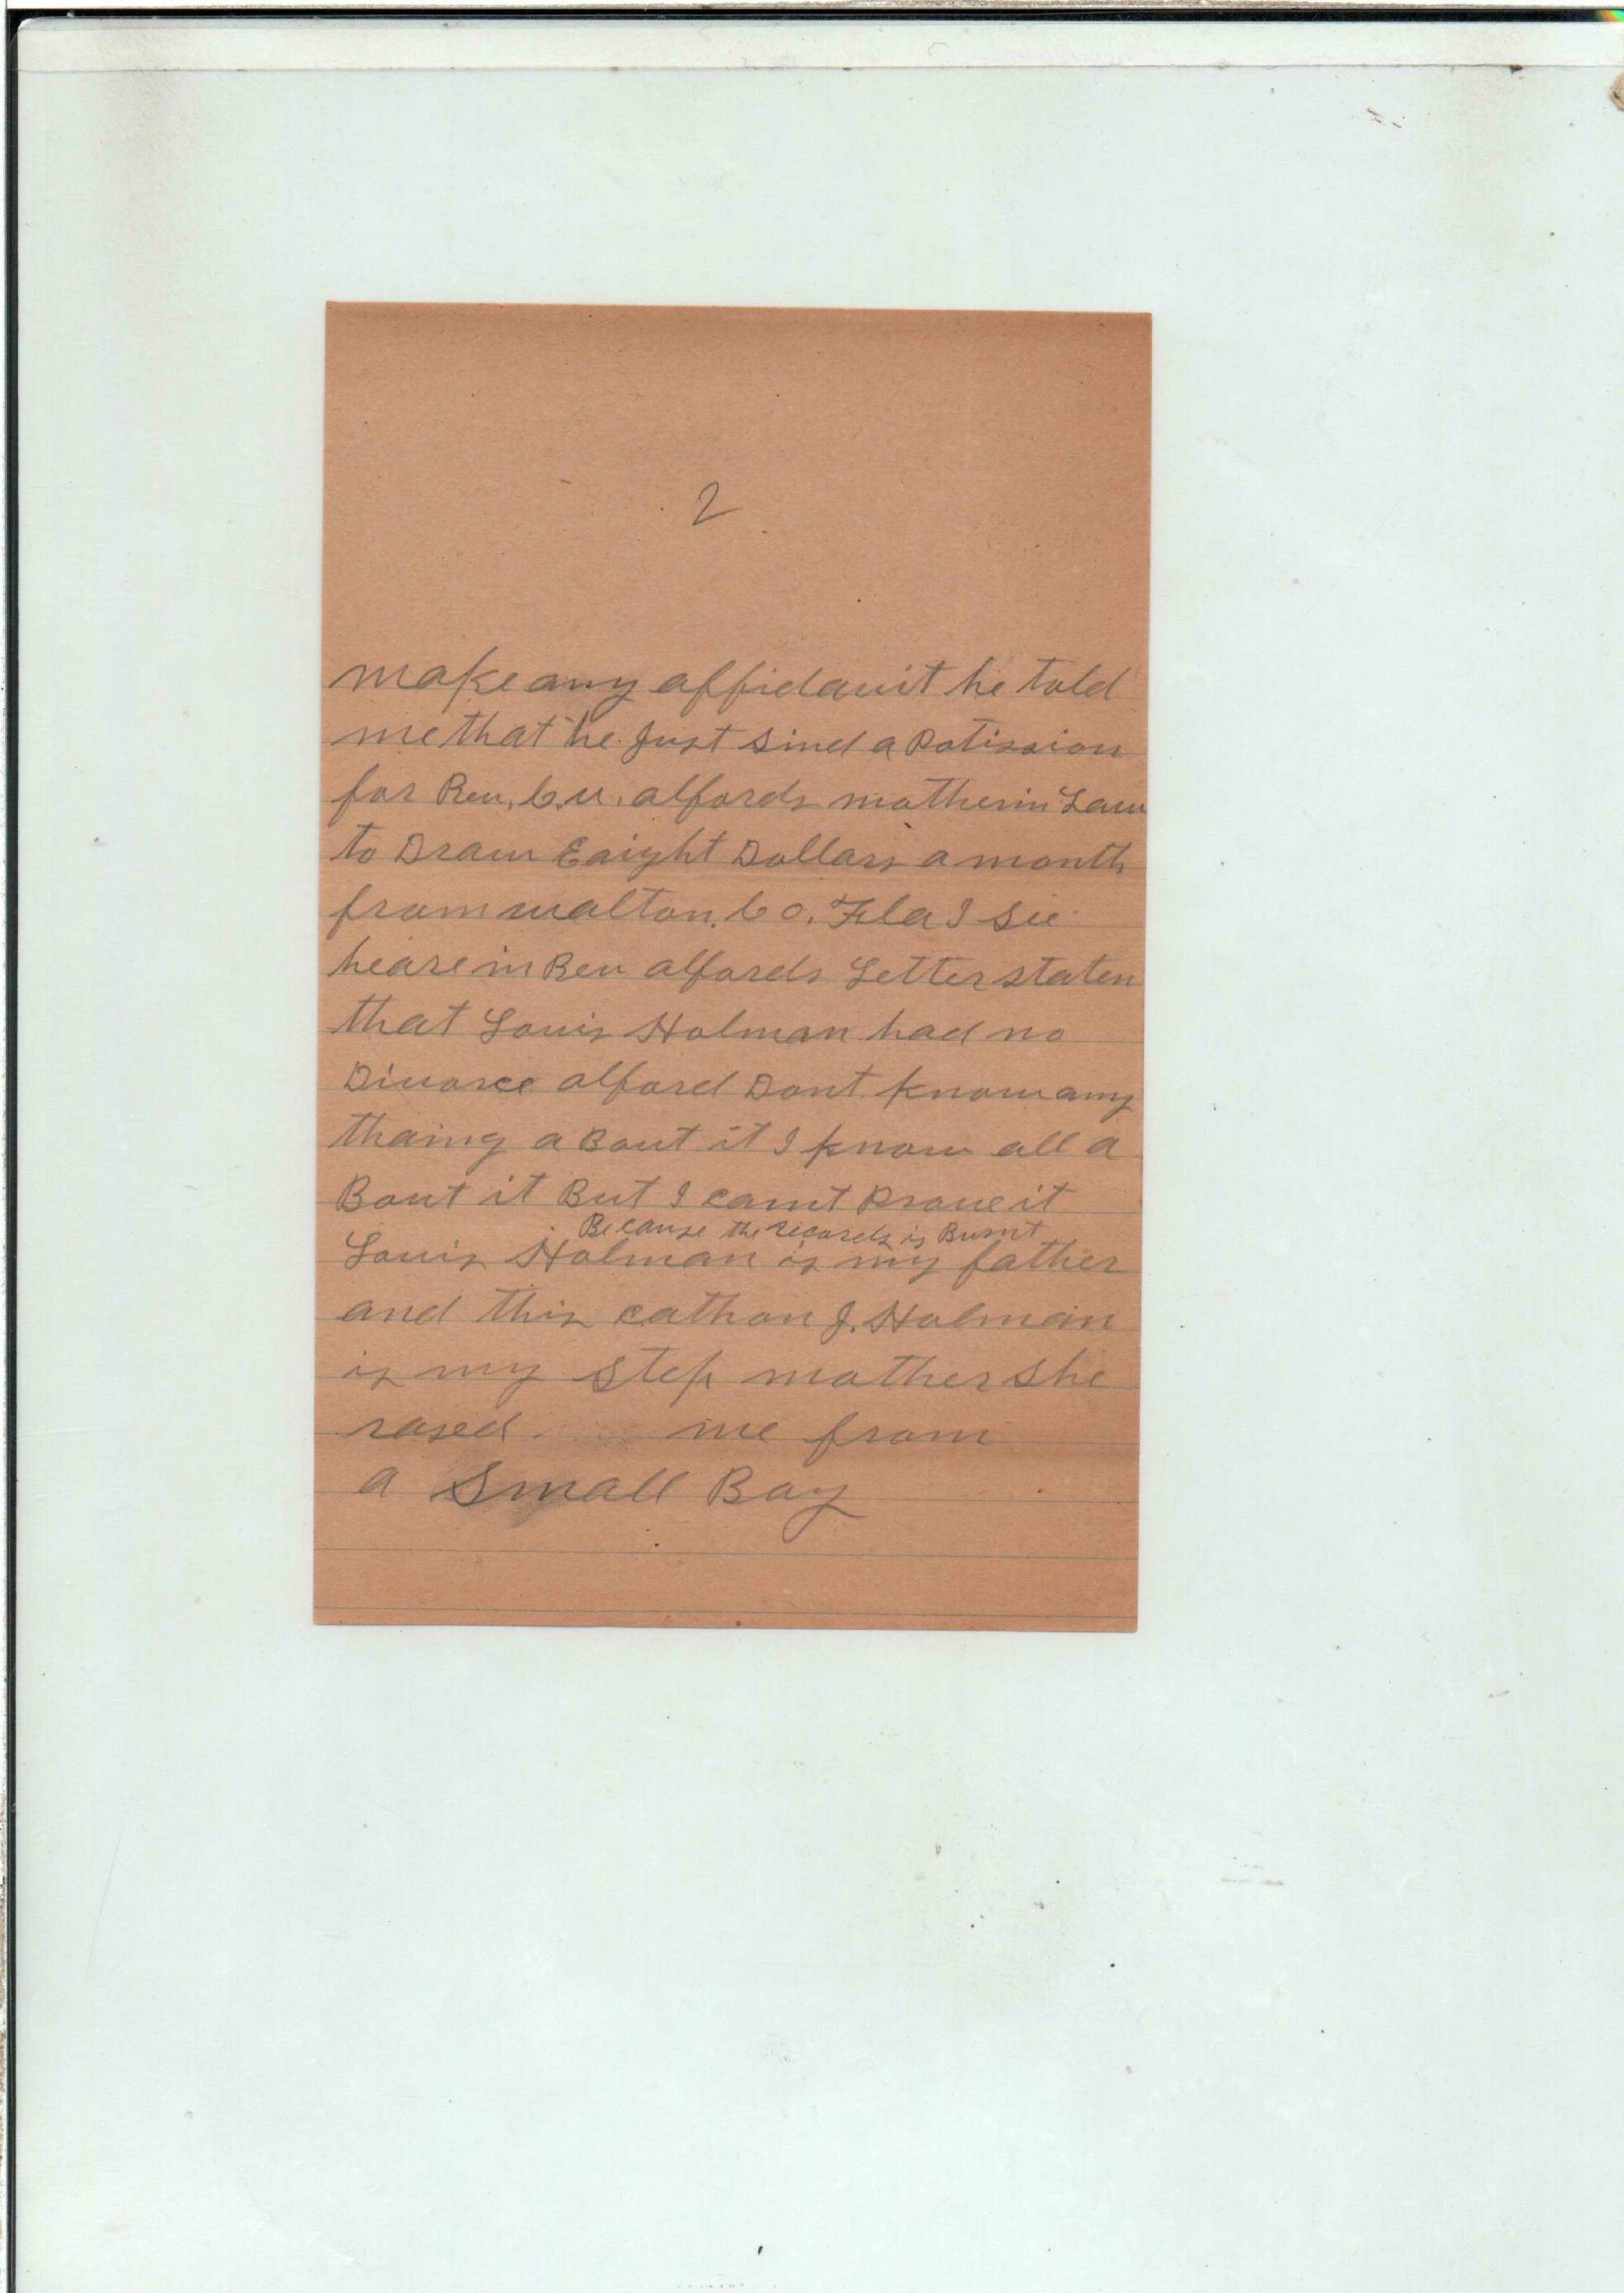 2
make any affidavit he told
me that he Just Sind a Potission
for Rev. C.U. alfords motherin Law
to Draw Eaight Dollars a month
from walton. Co. Fla I See
heare in Rev alfords Letter staten
that Louis Holman had no
Divorce alford Dont know any
thaing a Bout it I know all a
Bout it But I cannt Prove it
Because the Records is Burnt
Louis Holman is my father
and this cathan J. Holman
is my Step mother She
rased me from
a Small Boy